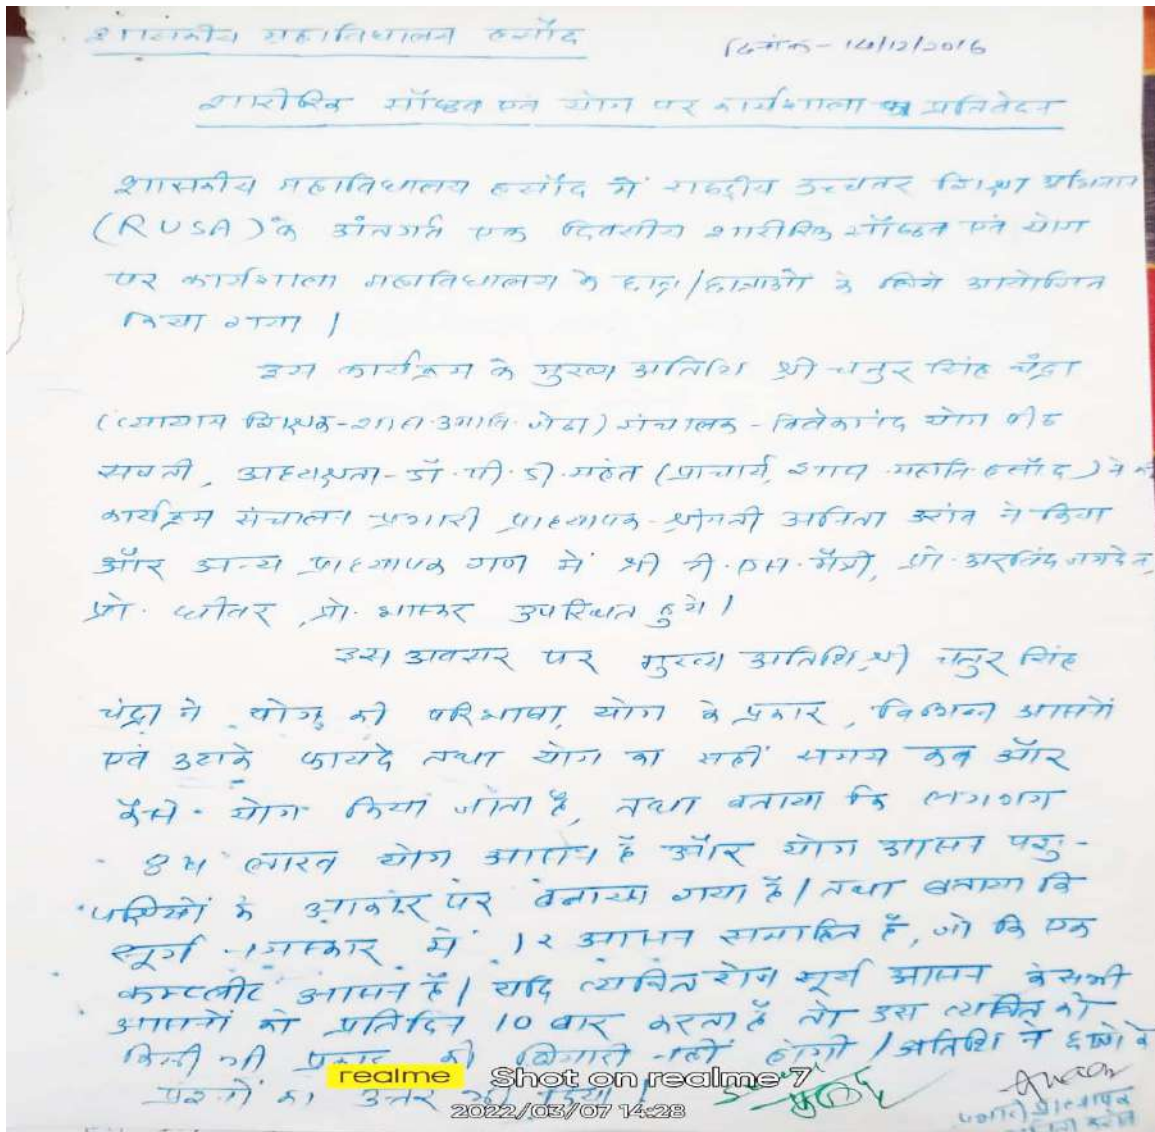 शासकीय महाविद्यालय हसौद
दिनांक - 14/12/2016
शारीरिक सौष्ठव एवं योग पर कार्यशाला का प्रतिवेदन
शासकीय महाविद्यालय हसौद में राष्ट्रीय उच्चतर शिक्षा अभियान
(RUSA) के अंतर्गत एक दिवसीय शारीरिक सौष्ठव एवं योग
पर कार्यशाला महाविद्यालय के छात्र/छात्राओं के लिये आयोजित
किया गया।
इस कार्यक्रम के मुख्य अतिथि श्री चतुर सिंह चंद्रा
(व्यायाम शिक्षक - संचालक - विवेकानंद योग पीठ
अध्यक्षता - डॉ. पी. डी. महंत (प्राचार्य, शास. महावि. हसौद) ने की
कार्यक्रम संचालन प्रभारी प्राध्यापक - श्रीमती अनिता उरांव ने किया
और अन्य प्राध्यापक गण में श्री मैत्री, प्रो. अरविंद जगदेव,
प्रो. धीवर, प्रो. भास्कर उपस्थित हुये।
इस अवसर पर मुख्य अतिथि श्री चतुर सिंह
चंद्रा ने योग की परिभाषा, योग के प्रकार, विभिन्न आसनों
एवं उसके फायदे तथा योग का सही समय कब और
कैसे योग किया जाता है, तथा बताया कि लगभग
84 लाख योग आसन है और योग आसन पशु-
पक्षियों के आकार पर बनाया गया है। तथा बताया कि
सूर्य नमस्कार में 12 आसन समाहित है, जो कि एक
कम्प्लीट आसन है। यदि व्यक्ति रोज सूर्य आसन के सभी
आसनों को प्रतिदिन 10 बार करता है तो उस व्यक्ति को
किसी भी प्रकार की बिमारी नहीं होगी। अतिथि ने छात्रों के
प्रश्नों का उत्तर भी दिया।
realme Shot on realme 7
2022/03/07 14:28